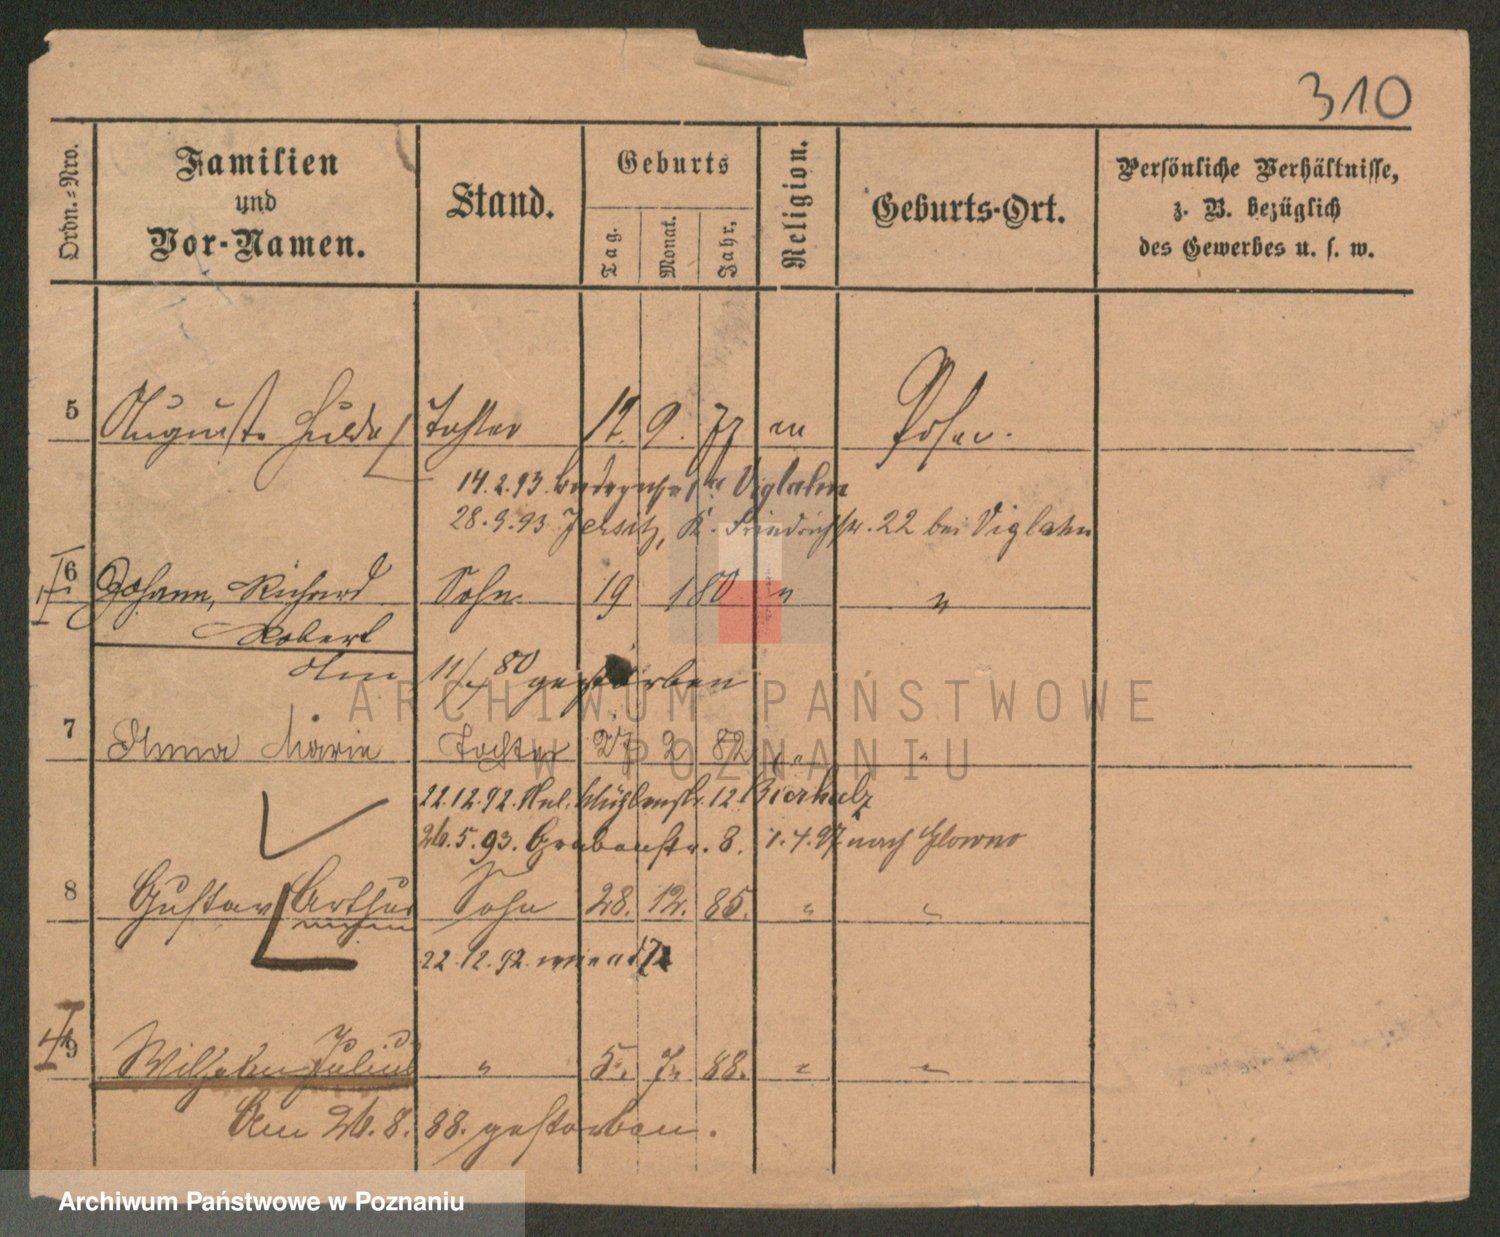 310
Ordn.-Nro.
Familien
und
Vor-Namen.
Stand.
Geburts
Tag.
Monat.
Jahr,
Religion.
Geburts-Ort.
Persönliche Verhältnisse,
z. B. bezüglich
des Gewerbes u. s. w.
5 Auguste Hulda Tochter 12. 9. 77 Posen.
14.2.93. Viglahn
28.9.93 Jersitz, K. Friedrichstr. 22 bei Viglahn
6 Johann, Richard Sohn 19 1 80 " "
Robert
Am 11/7 80 gestorben
7 Anna Marie Tochter 27 2 82 " "
22.12.92. Mühlenstr. 12 Bierholz
26.5.93. Grabenstr. 8. 1.4.97 nach Glowno
8 Gustav Arthur Sohn 28. 12. 85. " "
22.12.92.
9 Wilhelm Julius " 5. 7. 88. " "
Am 26.8.88. gestorben.
ARCHIWUM PAŃSTWOWE
W POZNANIU
Archiwum Państwowe w Poznaniu